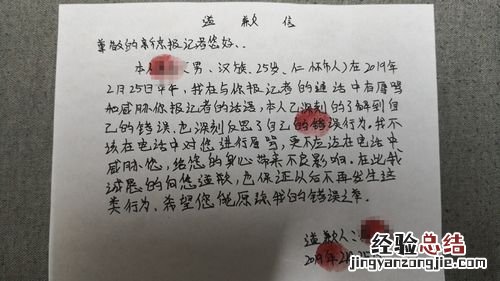 道歉信
尊敬的新京报记者您好、
本人 男、汉族、25岁、仁怀市人)在2019年
2月25日中午，我在与你报记者的通话中有辱骂
和威胁你报记者的话语，本人已深刻的了解到自
己的错误、也深刻反思了自己的错误行为。我不
该在电话中对您进行辱骂，更不应该在电话中
威胁您，给您的身心带来不良影响。在此我
诚恳的向您道歉，也保证以后不再发生这
类行为、希望您能原谅我的错误之举。
道歉人：
2019年2月
经验总结
jingyanzongjie.com